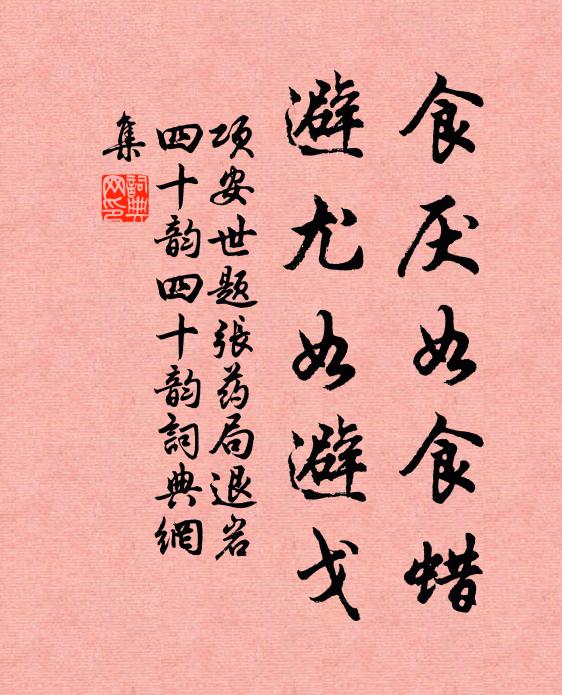 食厌如食蜡
避尤如避戈
项安世题张药局退岩
四十韵四十韵詞典網
集
詞典
网印